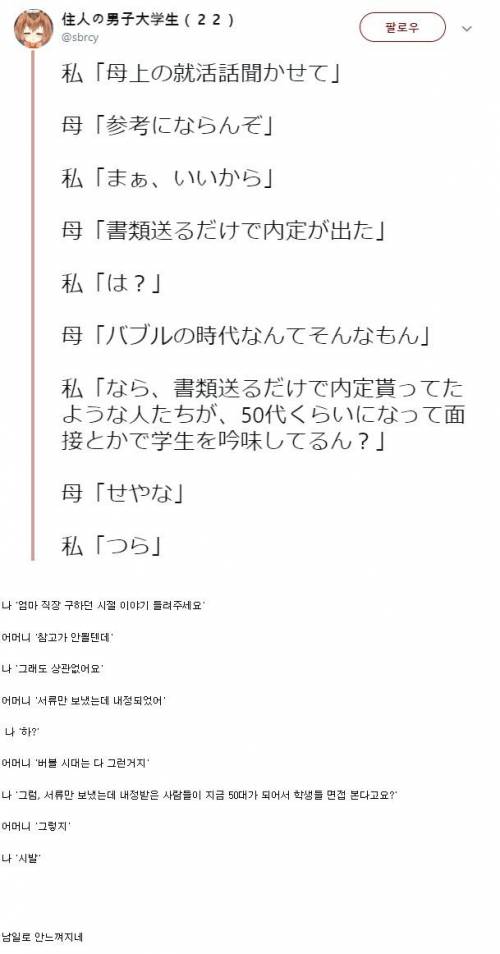 住人の男子大学生（２２）
@sbrcy
팔로우
私「母上の就活話聞かせて」
母「参考にならんぞ」
私「まぁ、いいから」
母「書類送るだけで内定が出た」
私「は？」
母「バブルの時代なんてそんなもん」
私「なら、書類送るだけで内定貰ってた
ような人たちが、50代くらいになって面
接とかで学生を吟味してるん？」
母「せやな」
私「つら」
나 '엄마 직장 구하던 시절 이야기 들려주세요'
어머니 '참고가 안될텐데'
나 '그래도 상관없어요'
어머니 '서류만 보냈는데 내정되었어'
나 '하?'
어머니 '버블 시대는 다 그런거지'
나 '그럼, 서류만 보냈는데 내정받은 사람들이 지금 50대가 되어서 학생들 면접 본다고요?'
어머니 '그렇지'
나 '시발'
남일로 안느껴지네